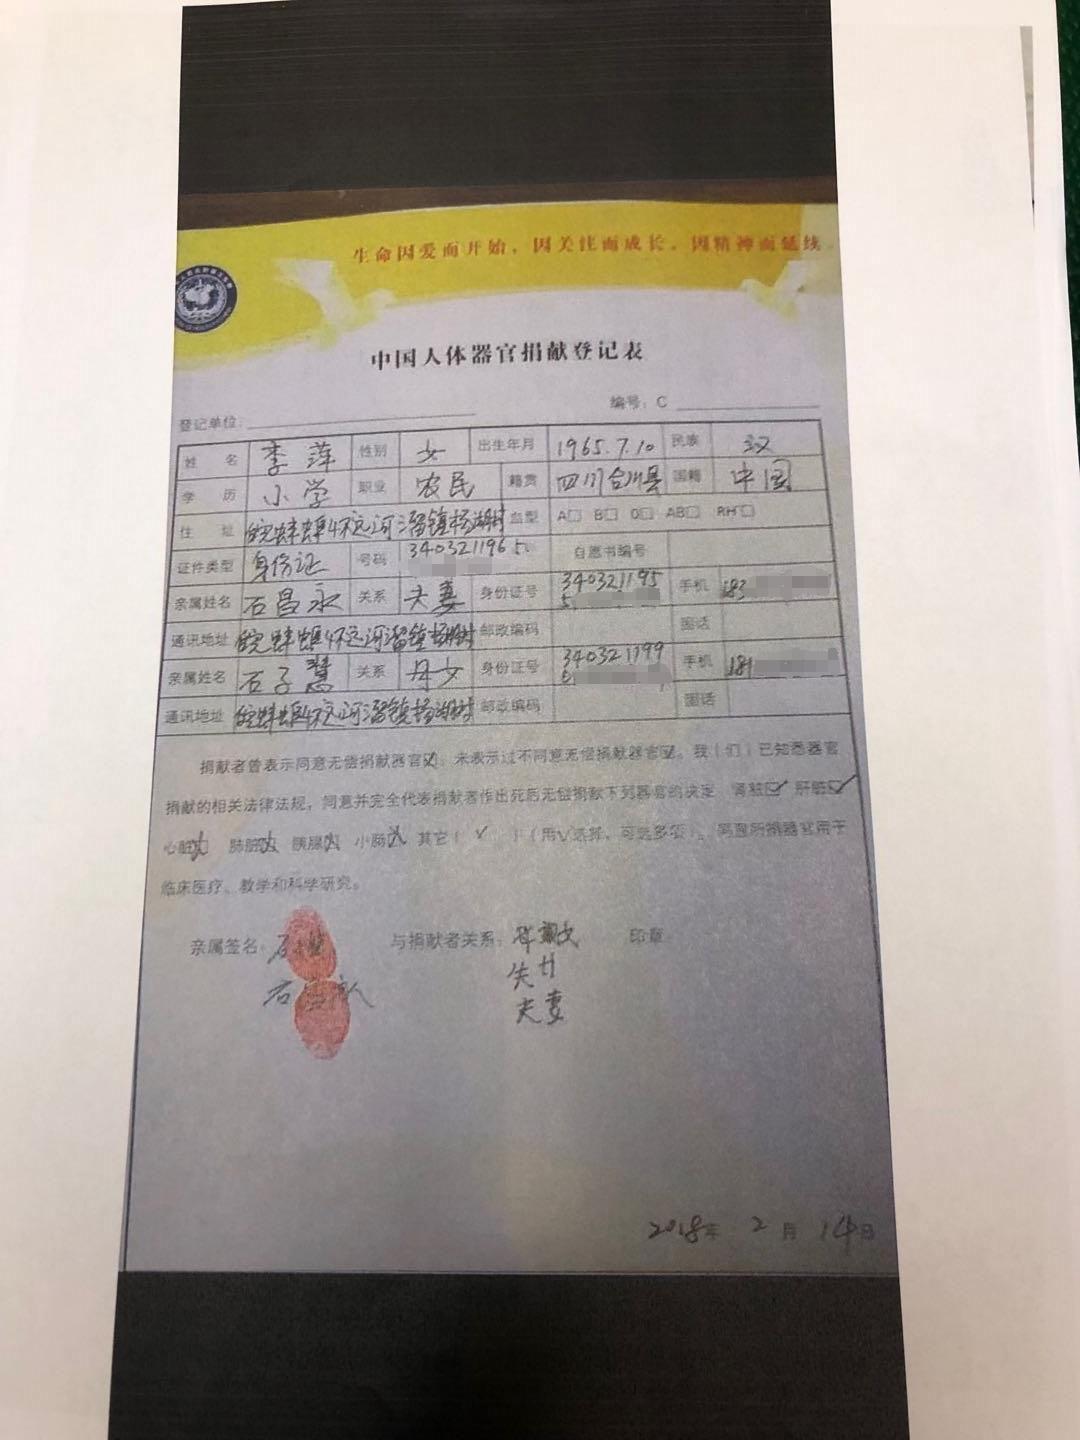 生命因爱而开始，因关注而成长，因精神而延续
中国人体器官捐献登记表
编号：C
登记单位：
姓名 李萍 性别 女 出生年月 1965.7.10 民族 汉
学历 小学 职业 农民 籍贯 四川合川县 国籍 中国
住址 皖蚌埠怀远河溜镇杨湖村 血型 A□ B□ O□ AB□ RH□
证件类型 身份证 号码 340321196 自愿书编号
亲属姓名 石昌永 关系 夫妻 身份证号 340321195 手机 183
通讯地址 皖蚌埠怀远河溜镇杨湖村 邮政编码 固话
亲属姓名 石子慧 关系 母女 身份证号 340321199 手机 181
通讯地址 皖蚌埠怀远河溜镇杨湖村 邮政编码 固话
捐献者曾表示同意无偿捐献器官☑，未表示过不同意无偿捐献器官☑。我（们）已知悉器官
捐献的相关法律法规，同意并完全代表捐献者作出死后无偿捐献下列器官的决定 肾脏☑ 肝脏☑
心脏 肺脏 胰腺 小肠 其它（ ✓ ）（用√选择，可选多项）。同意所捐器官用于
临床医疗、教学和科学研究。
亲属签名： 与捐献者关系： 印章
夫妻
2018年 2月 14日